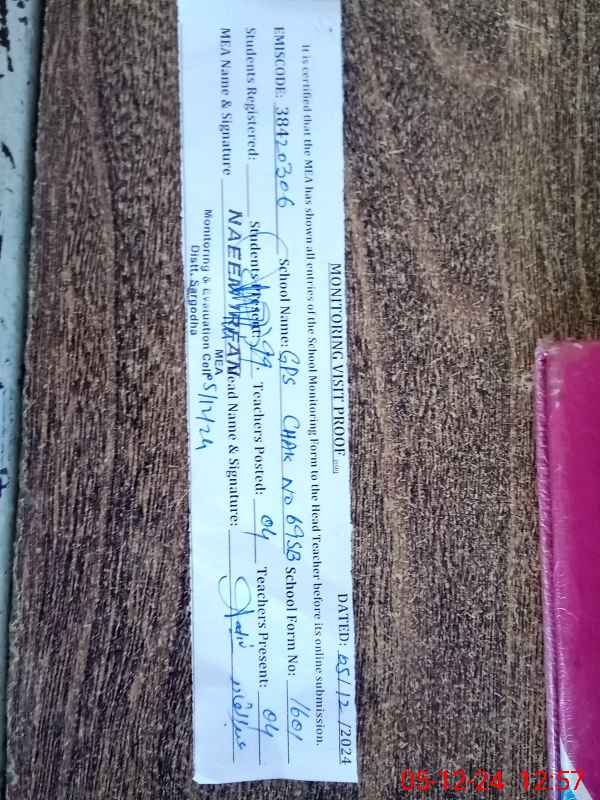 MONITORING VISIT PROOF DATED: 05/12/2024
It is certified that the MEA has shown all entries of the School Monitoring Form to the Head Teacher before its online submission.
EMISCODE: 38420306 School Name: GPS CHAK NO 69SB School Form No: 1601
Students Registered: Students Present: 99 Teachers Posted: 04 Teachers Present: 04
MEA Name & Signature NAEEM Head Name & Signature:
MEA
Monitoring & Evaluation Cell 5/12/24
Distt. Sargodha
05-12-24 12:57